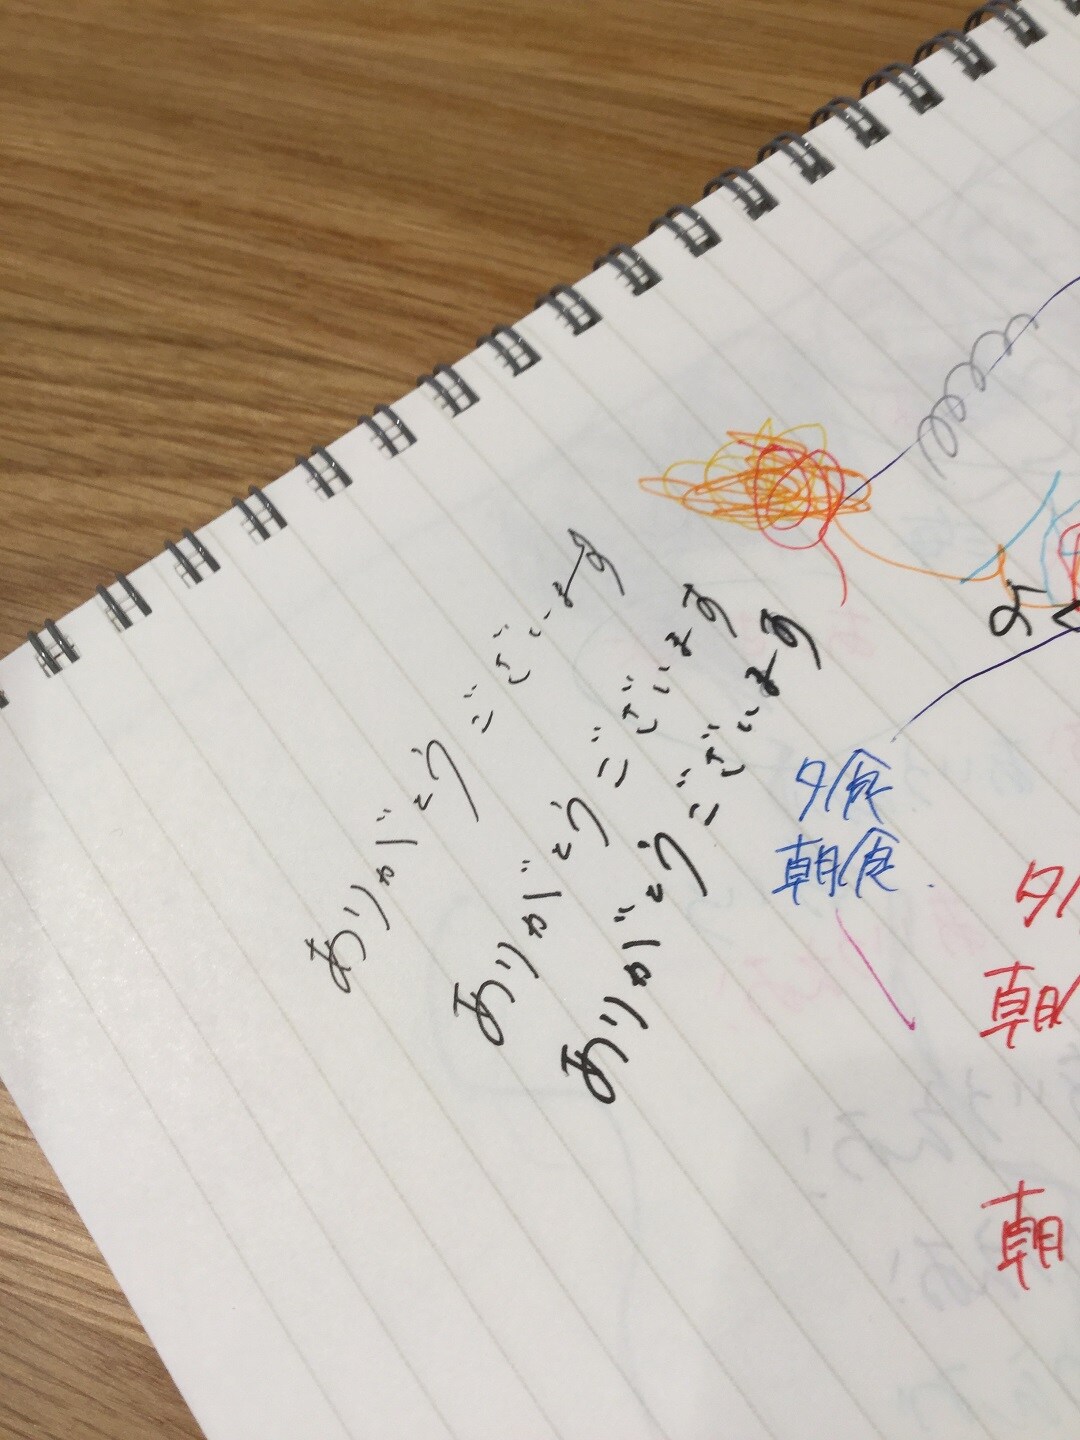 ありがとうございます
ありがとうございます
ありがとうございます
夕食
朝食
夕
朝
朝